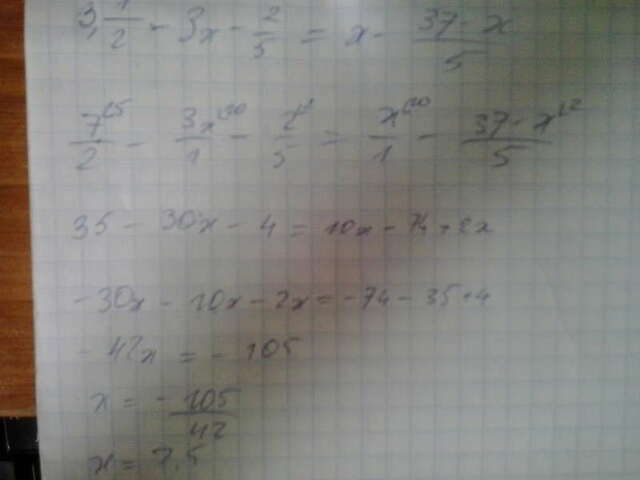 3 1/2 - 3x - 2/5 = x - (37 - x)/5
7^(5/2 - 3x^(10/1 - 2^(2/5 = x^(10/1 - (37 - x)^(2/5
35 - 30x - 4 = 10x - 74 + 2x
-30x - 10x - 2x = -74 - 35 + 4
-42x = -105
x = - 105/42
x = 2,5